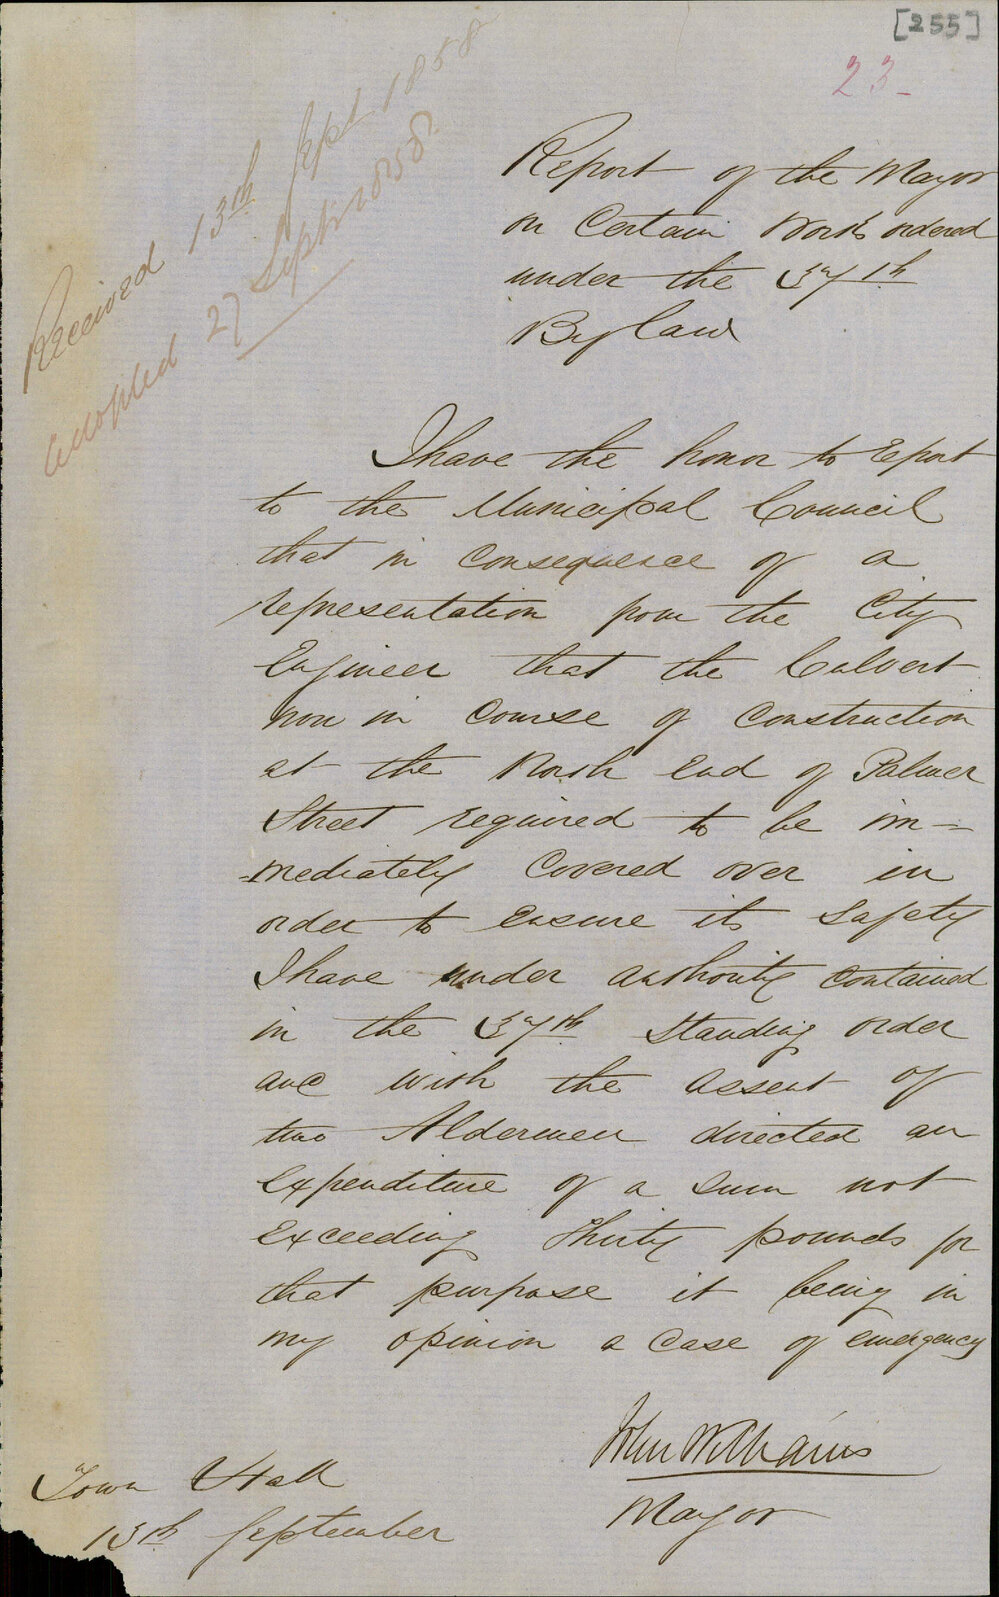 [255]
23-
Received 13th Sept 1858
Adopted 27 Septr 1858
Report of the Mayor
on Certain Works ordered
under the 37th
By law
I have the honor to report
to the Municipal Council
that in consequence of a
representation from the City
Engineer that the Culvert
now in course of construction
at the North End of Palmer
Street required to be im-
-mediately Covered over in
order to ensure its safety
I have under authority contained
in the 37th Standing order
and with the assent of
two Aldermen directed an
expenditure of a sum not
exceeding thirty pounds for
that purpose it being in
my opinion a Case of emergency
John Williams
Mayor
Town Hall
13th September